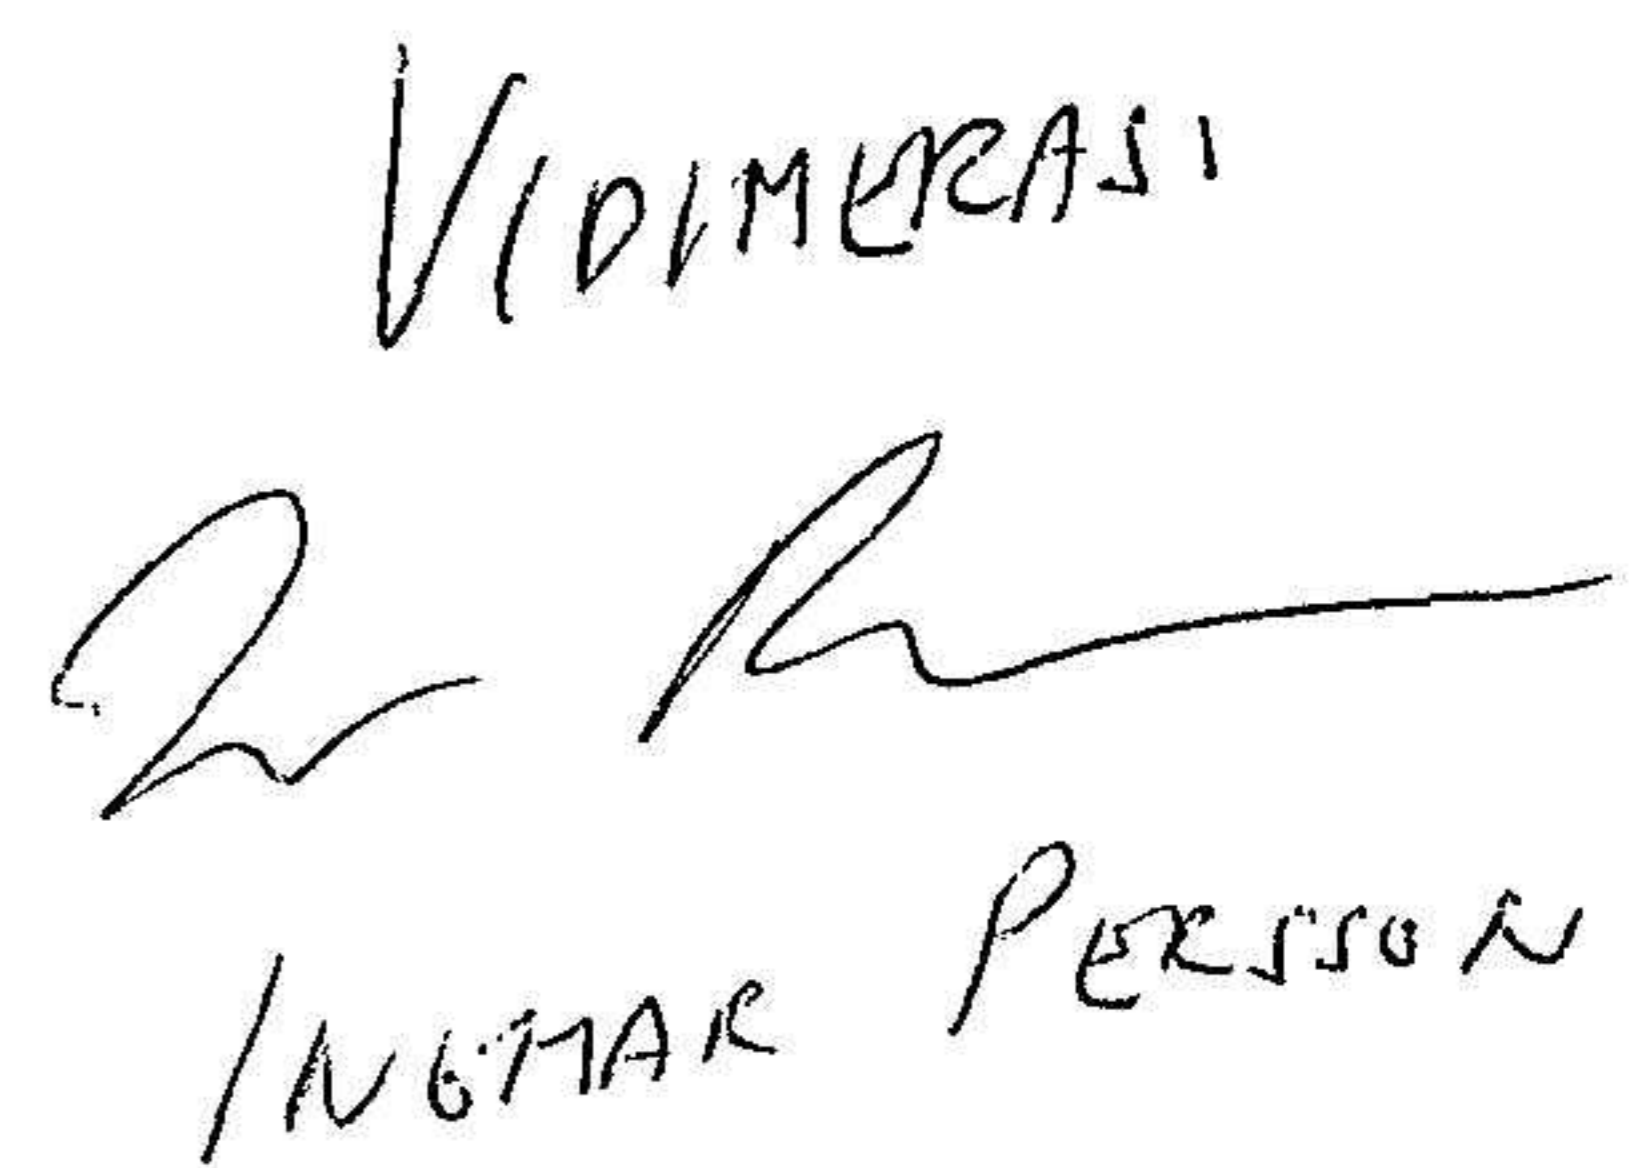 VIDIMERAS!
INGMAR PERSSON